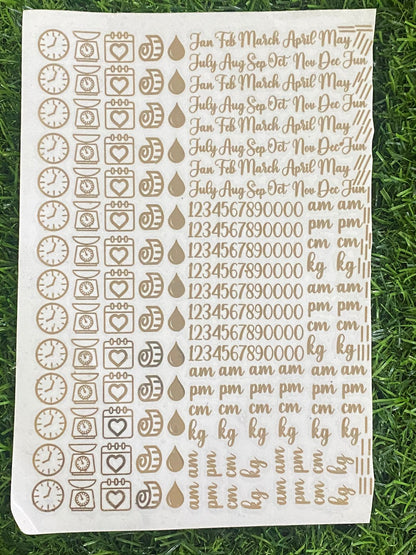 Jan Feb March April May
July Aug Sep Oct Nov Dec Jun
Jan Feb March April May
July Aug Sep Oct Nov Dec Jun
Jan Feb March April May
July Aug Sep Oct Nov Dec Jun
Jan Feb March April May
July Aug Sep Oct Nov Dec Jun
1234567890000 am am
1234567890000 pm pm
1234567890000 cm cm
1234567890000 kg kg
1234567890000 am am
1234567890000 pm pm
1234567890000 cm cm
1234567890000 kg kg
am am am am am am
pm pm pm pm pm pm
cm cm cm cm cm cm
kg kg kg kg kg kg
am pm cm kg am pm cm kg
am pm cm kg am pm cm kg